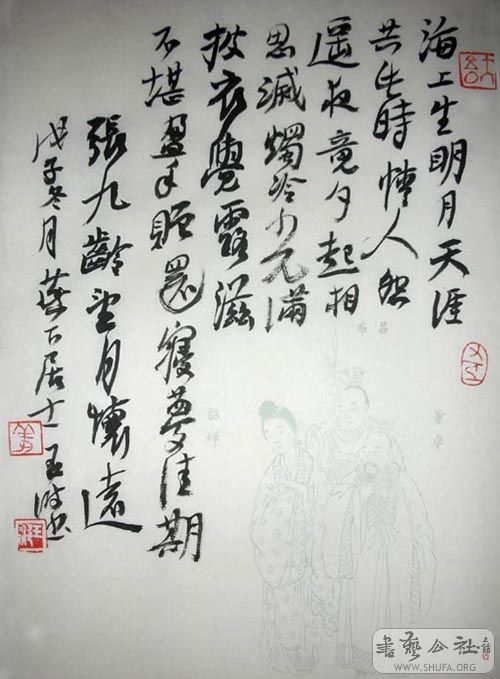 海上生明月天涯
共此時情人怨
遥夜竟夕起相
思滅燭怜光滿
披衣覺露滋
不堪盈手贈還寢夢佳期
張九齡望月懷遠
戊子冬月華下居士王書
吕布
董卓
貂蟬
書藝公社
WWW.SHUFA.ORG